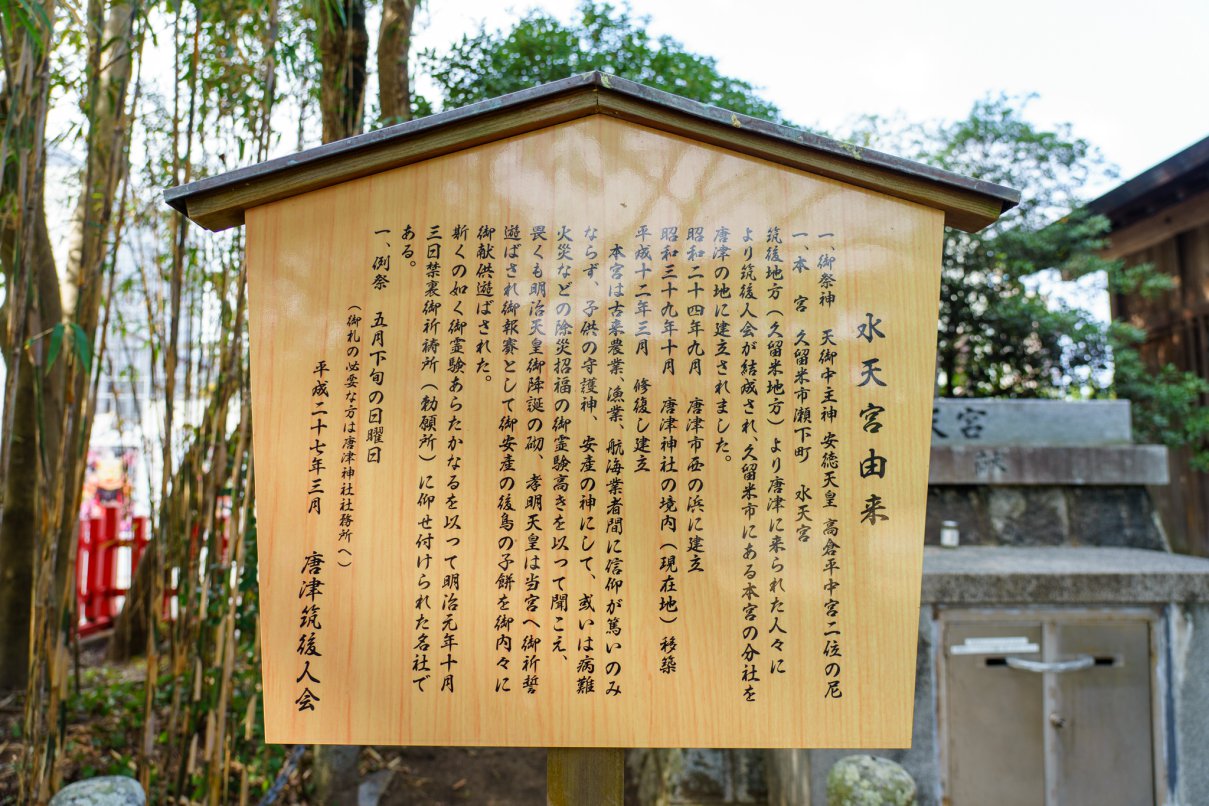 水天宮由来
一、御祭神 天御中主神 安徳天皇 高倉平中宮二位の尼
一、本 宮 久留米市瀬下町 水天宮
筑後地方（久留米地方）より唐津に来られた人々に
より筑後人会が結成され、久留米市にある本宮の分社を
唐津の地に建立されました。
昭和二十四年九月 唐津市西の浜に建立
昭和三十九年十月 唐津神社の境内（現在地）移築
平成十二年三月 修復し建立
本宮は古来農業、漁業、航海業者間に信仰が篤いのみ
ならず、子供の守護神、安産の神にして、或いは病難
火災などの除災招福の御霊験高きを以って聞こえ、
畏くも明治天皇御降誕の砌、孝明天皇は当宮へ御祈誓
遊ばされ御報賽として御安産の後鳥の子餅を御内々に
御献供遊ばされた。
斯くの如く御霊験あらたかなるを以って明治元年十月
三回禁裏御祈祷所（勅願所）に仰せ付けられた名社で
ある。
一、例祭 五月下旬の日曜日
（御札の必要な方は唐津神社社務所へ）
平成二十七年三月
唐津筑後人会
天宮